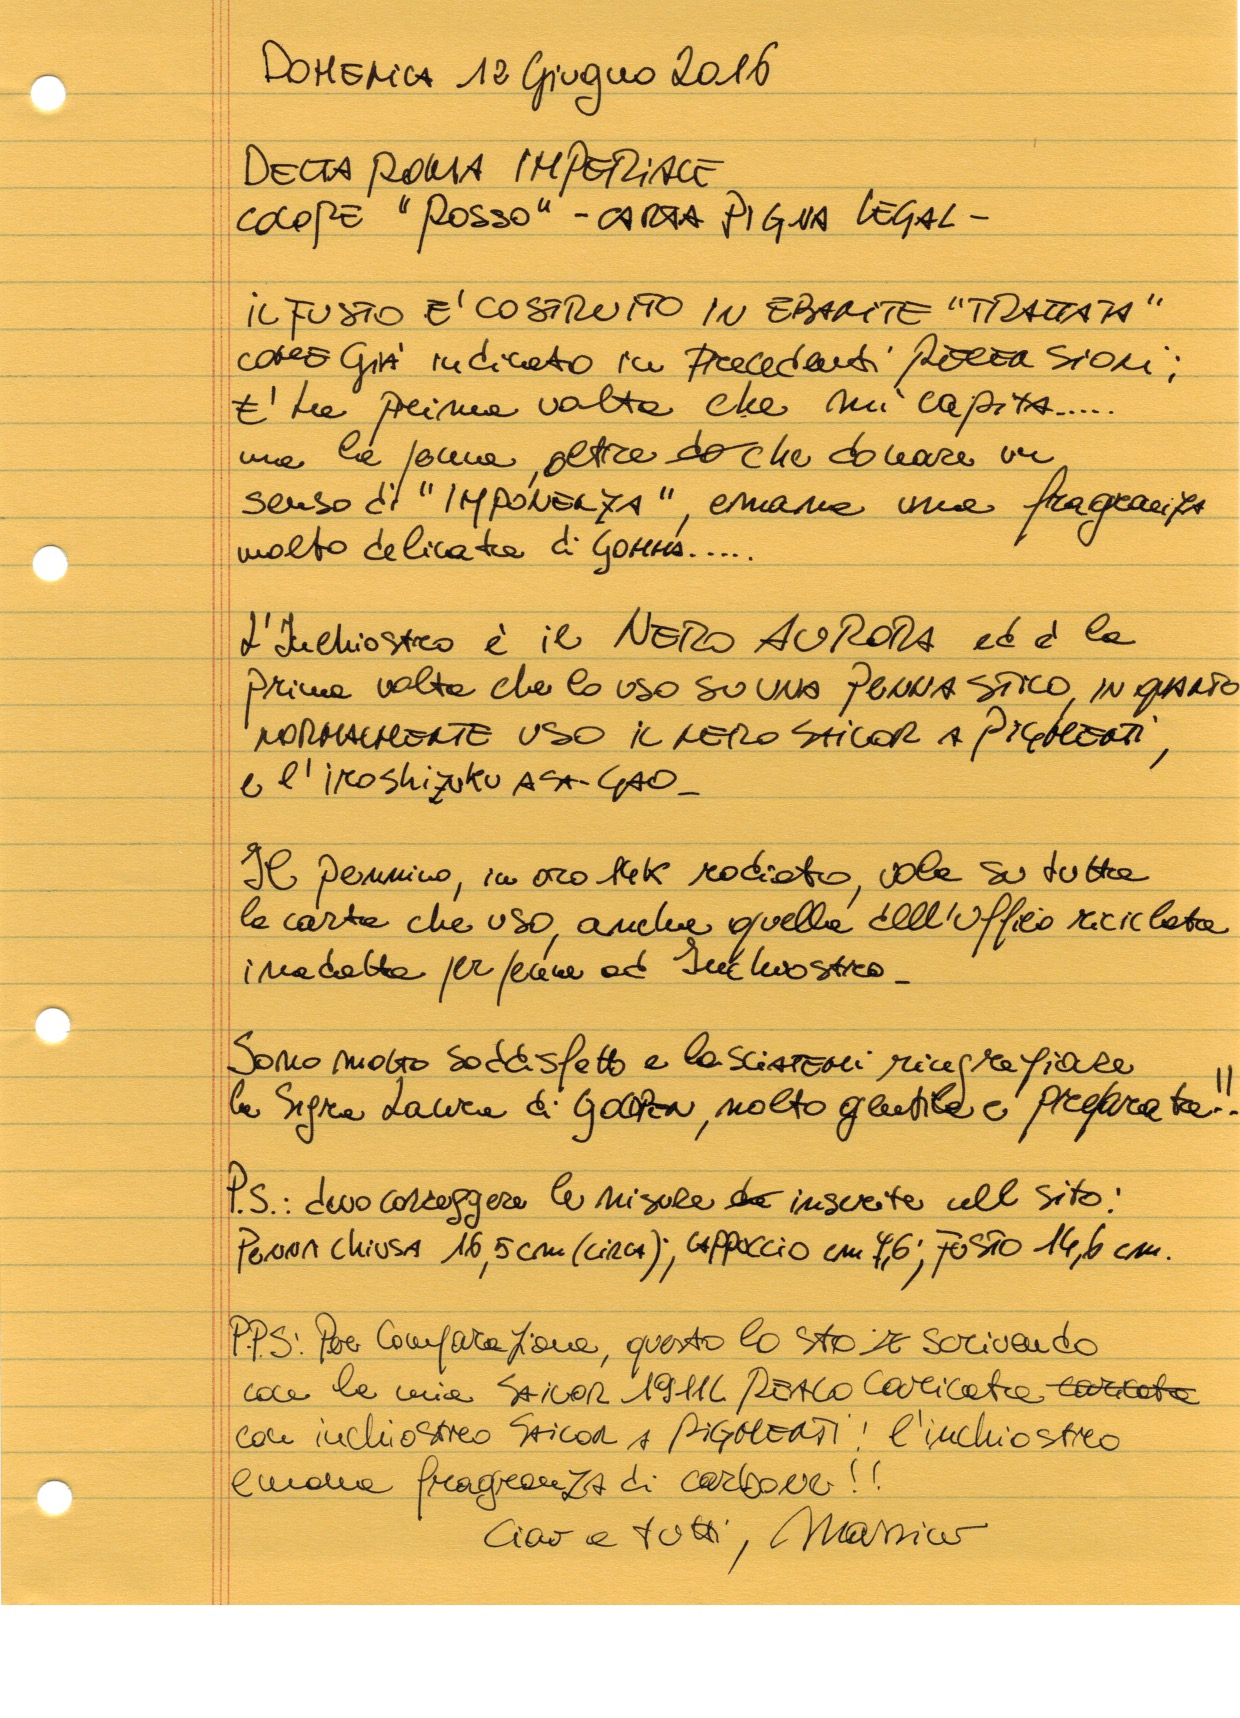 DOMENICA 12 Giugno 2016
DELTA ROMA IMPERIALE
COLORE "ROSSO" - CARTA PIGNA LEGAL -
IL FUSTO E' COSTRUITO IN EBANITE "TRATTATA"
COME GIÀ indicato in Precedenti RECENSIONI;
E' la prima volta che mi capita.....
ma la penna, oltre do che donare un
senso di "IMPONENZA", emana una fragranza
molto delicata di GOMMA.....
L'Inchiostro è il NERO AURORA ed è la
prima volta che lo uso SU UNA PENNA STILO, IN QUANTO
NORMALMENTE USO IL NERO SAILOR A PIGMENTI,
e l'iroshizuku ASA-GAO_
Il pennino, in oro 14K rodiato, vola su tutta
la carta che uso, anche quella dell'Ufficio riciclata
inadatta per penne ad Inchiostro_
Sono molto soddisfatto e lasciatemi ringraziare
la Sigra Laura di GOLDPEN, molto gentile e preparata!!
P.S.: devo correggere le misure da inserite nel sito:
PENNA CHIUSA 16,5 cm (circa); CAPPUCCIO cm 7,6; FUSTO 14,6 cm.
P.P.S: Per Comparazione, questo lo sto scrivendo
con la mia SAILOR 1911L REALO caricata caricata
con inchiostro SAILOR A PIGMENTI! l'inchiostro
emana fragranza di carbone!!
Ciao a tutti, Massimo